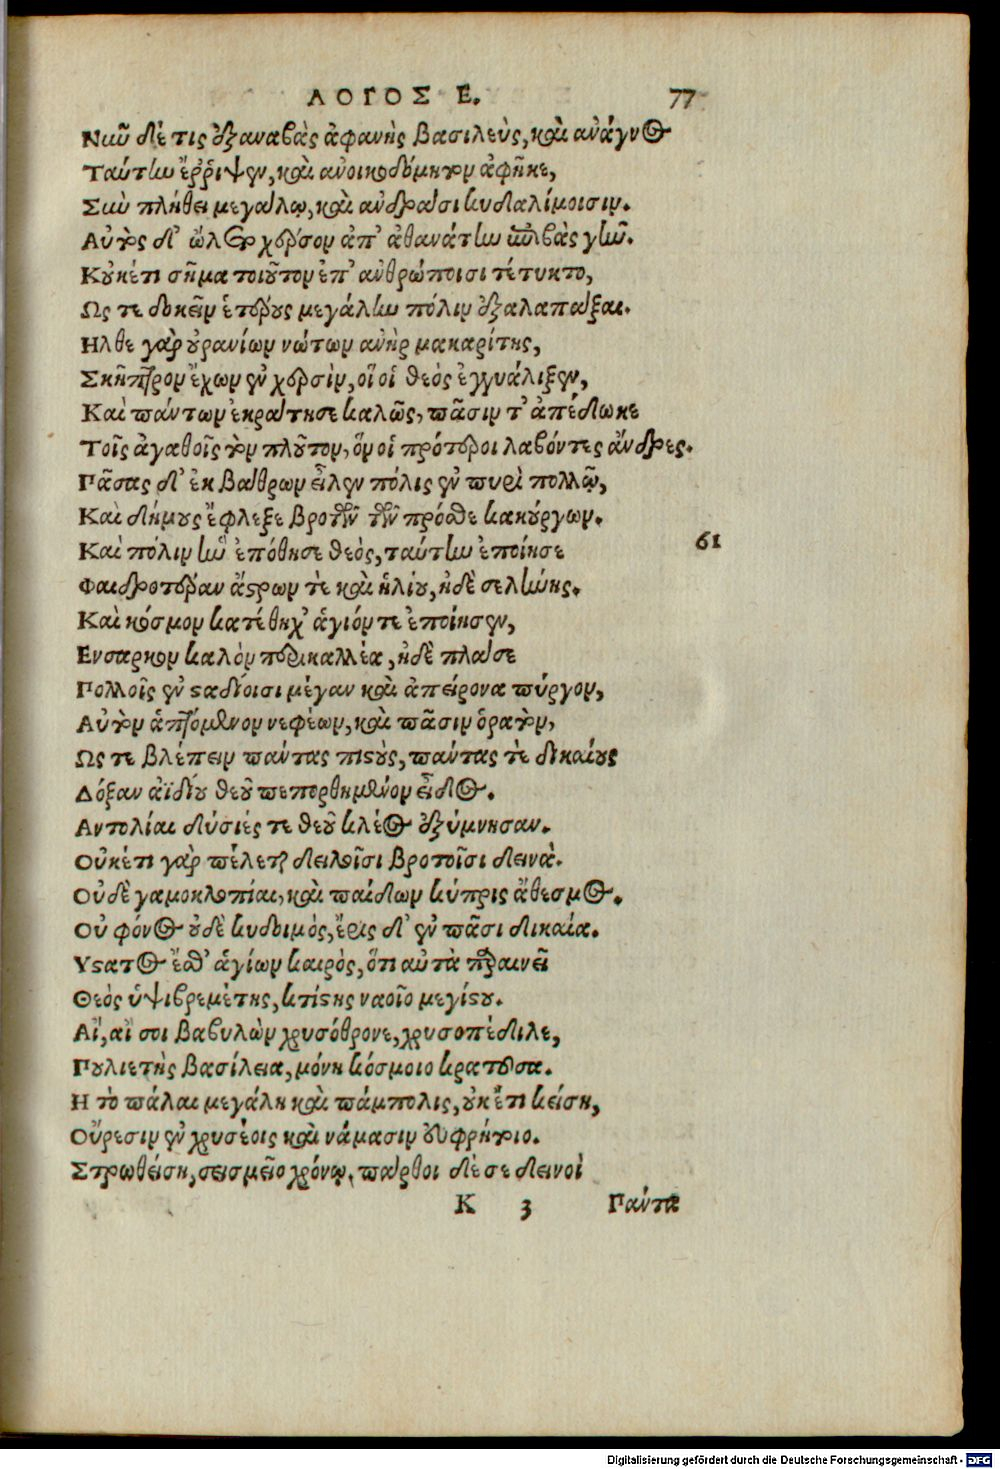 ΛΟΓΟΣ Ε. 77
Νῦν δέ τις ἐξαναβὰς ἀφανὴς βασιλεὺς, καὶ ἄναγνος
Ταύτην ἔῤῥιψεν, καὶ ἀνοικοδόμητον ἀφῆκε,
Σὺν πλήθει μεγάλῳ, καὶ ἀνδράσι κυδαλίμοισιν.
Αὐτὸς δ' ὤλετο χέρσον ἀπ' ἀθανάτην ἐπιβὰς γῆν.
Κοὐκέτι σῆμα τοιοῦτον ἐπ' ἀνθρώποισι τέτυκτο,
Ως τε δοκεῖν ἑτέρους μεγάλην πόλιν ἐξαλαπάξαι.
Ηλθε γὰρ οὐρανίων νώτων ἀνὴρ μακαρίτης,
Σκῆπτρον ἔχων ἐν χερσὶν, οἵ οἱ θεὸς ἐγγυάλιξεν,
Καὶ πάντων ἐκράτησε καλῶς, πᾶσιν τ' ἀπέδωκε
Τοῖς ἀγαθοῖς τὸν πλοῦτον, ὅν οἱ πρότεροι λαβόντες ἄνδρες.
Πᾶσας δ' ἐκ βάθρων εἷλεν πόλις ἐν πυρὶ πολλῷ,
Καὶ δήμους ἔφλεξε βροτῶν τῶν πρόσθε κακούργων.
Καὶ πόλιν ἣν ἐπόθησε θεὸς, ταύτην ἐποίησε 61
Φαιδροτέραν ἄστρων τὲ καὶ ἡλίου, ἠδὲ σελήνης.
Καὶ κόσμον κατέθηχ' ἁγιόν τε ἐποίησεν,
Ενσαρκον καλὸν περικαλλέα, ἠδὲ πλάσε
Πολλοῖς ἐν σταδίοισι μέγαν καὶ ἀπείρονα πύργον,
Αὐτὸν ἁπτόμενον νεφέων, καὶ πᾶσιν ὁρατὸν,
Ως τε βλέπειν πάντας πιστοὺς, πάντας τὲ δικαίους
Δόξαν ἀϊδίου θεοῦ πεπορθημένον εἶδος.
Αντολίαι δύσιές τε θεοῦ κλέος ἐξύμνησαν.
Οὐκέτι γὰρ πέλεται δειλοῖσι βροτοῖσι δεινὰ.
Οὐδὲ γαμοκλοπίαι, καὶ παίδων κύπρις ἄθεσμος.
Οὐ φόνος οὐδὲ κυδοιμὸς, ἔρις δ' ἐν πᾶσι δικαία.
Υστατος ἔσθ' ἁγίων καιρὸς, ὅτι αὐτὰ περαινεῖ
Θεὸς ὑψιβρεμέτης, κτίστης ναοῖο μεγίστου.
Αἴ, αἴ σοι βαβυλὼν χρυσόθρονε, χρυσοπέδιλε,
Πουλιετὴς βασίλεια, μόνη κόσμοιο κρατοῦσα.
Η τὸ πάλαι μεγάλη καὶ πάμπολις, οὐκ ἔτι κείση,
Οὔρεσιν ἐν χρυσέοις καὶ νάμασιν εὐφρήτιο.
Στρωθείση, σεισμεῖο χρόνῳ, πάρθοι δέ σε δεινοὶ
Κ 3 Πάντα
Digitalisierung gefördert durch die Deutsche Forschungsgemeinschaft - DFG